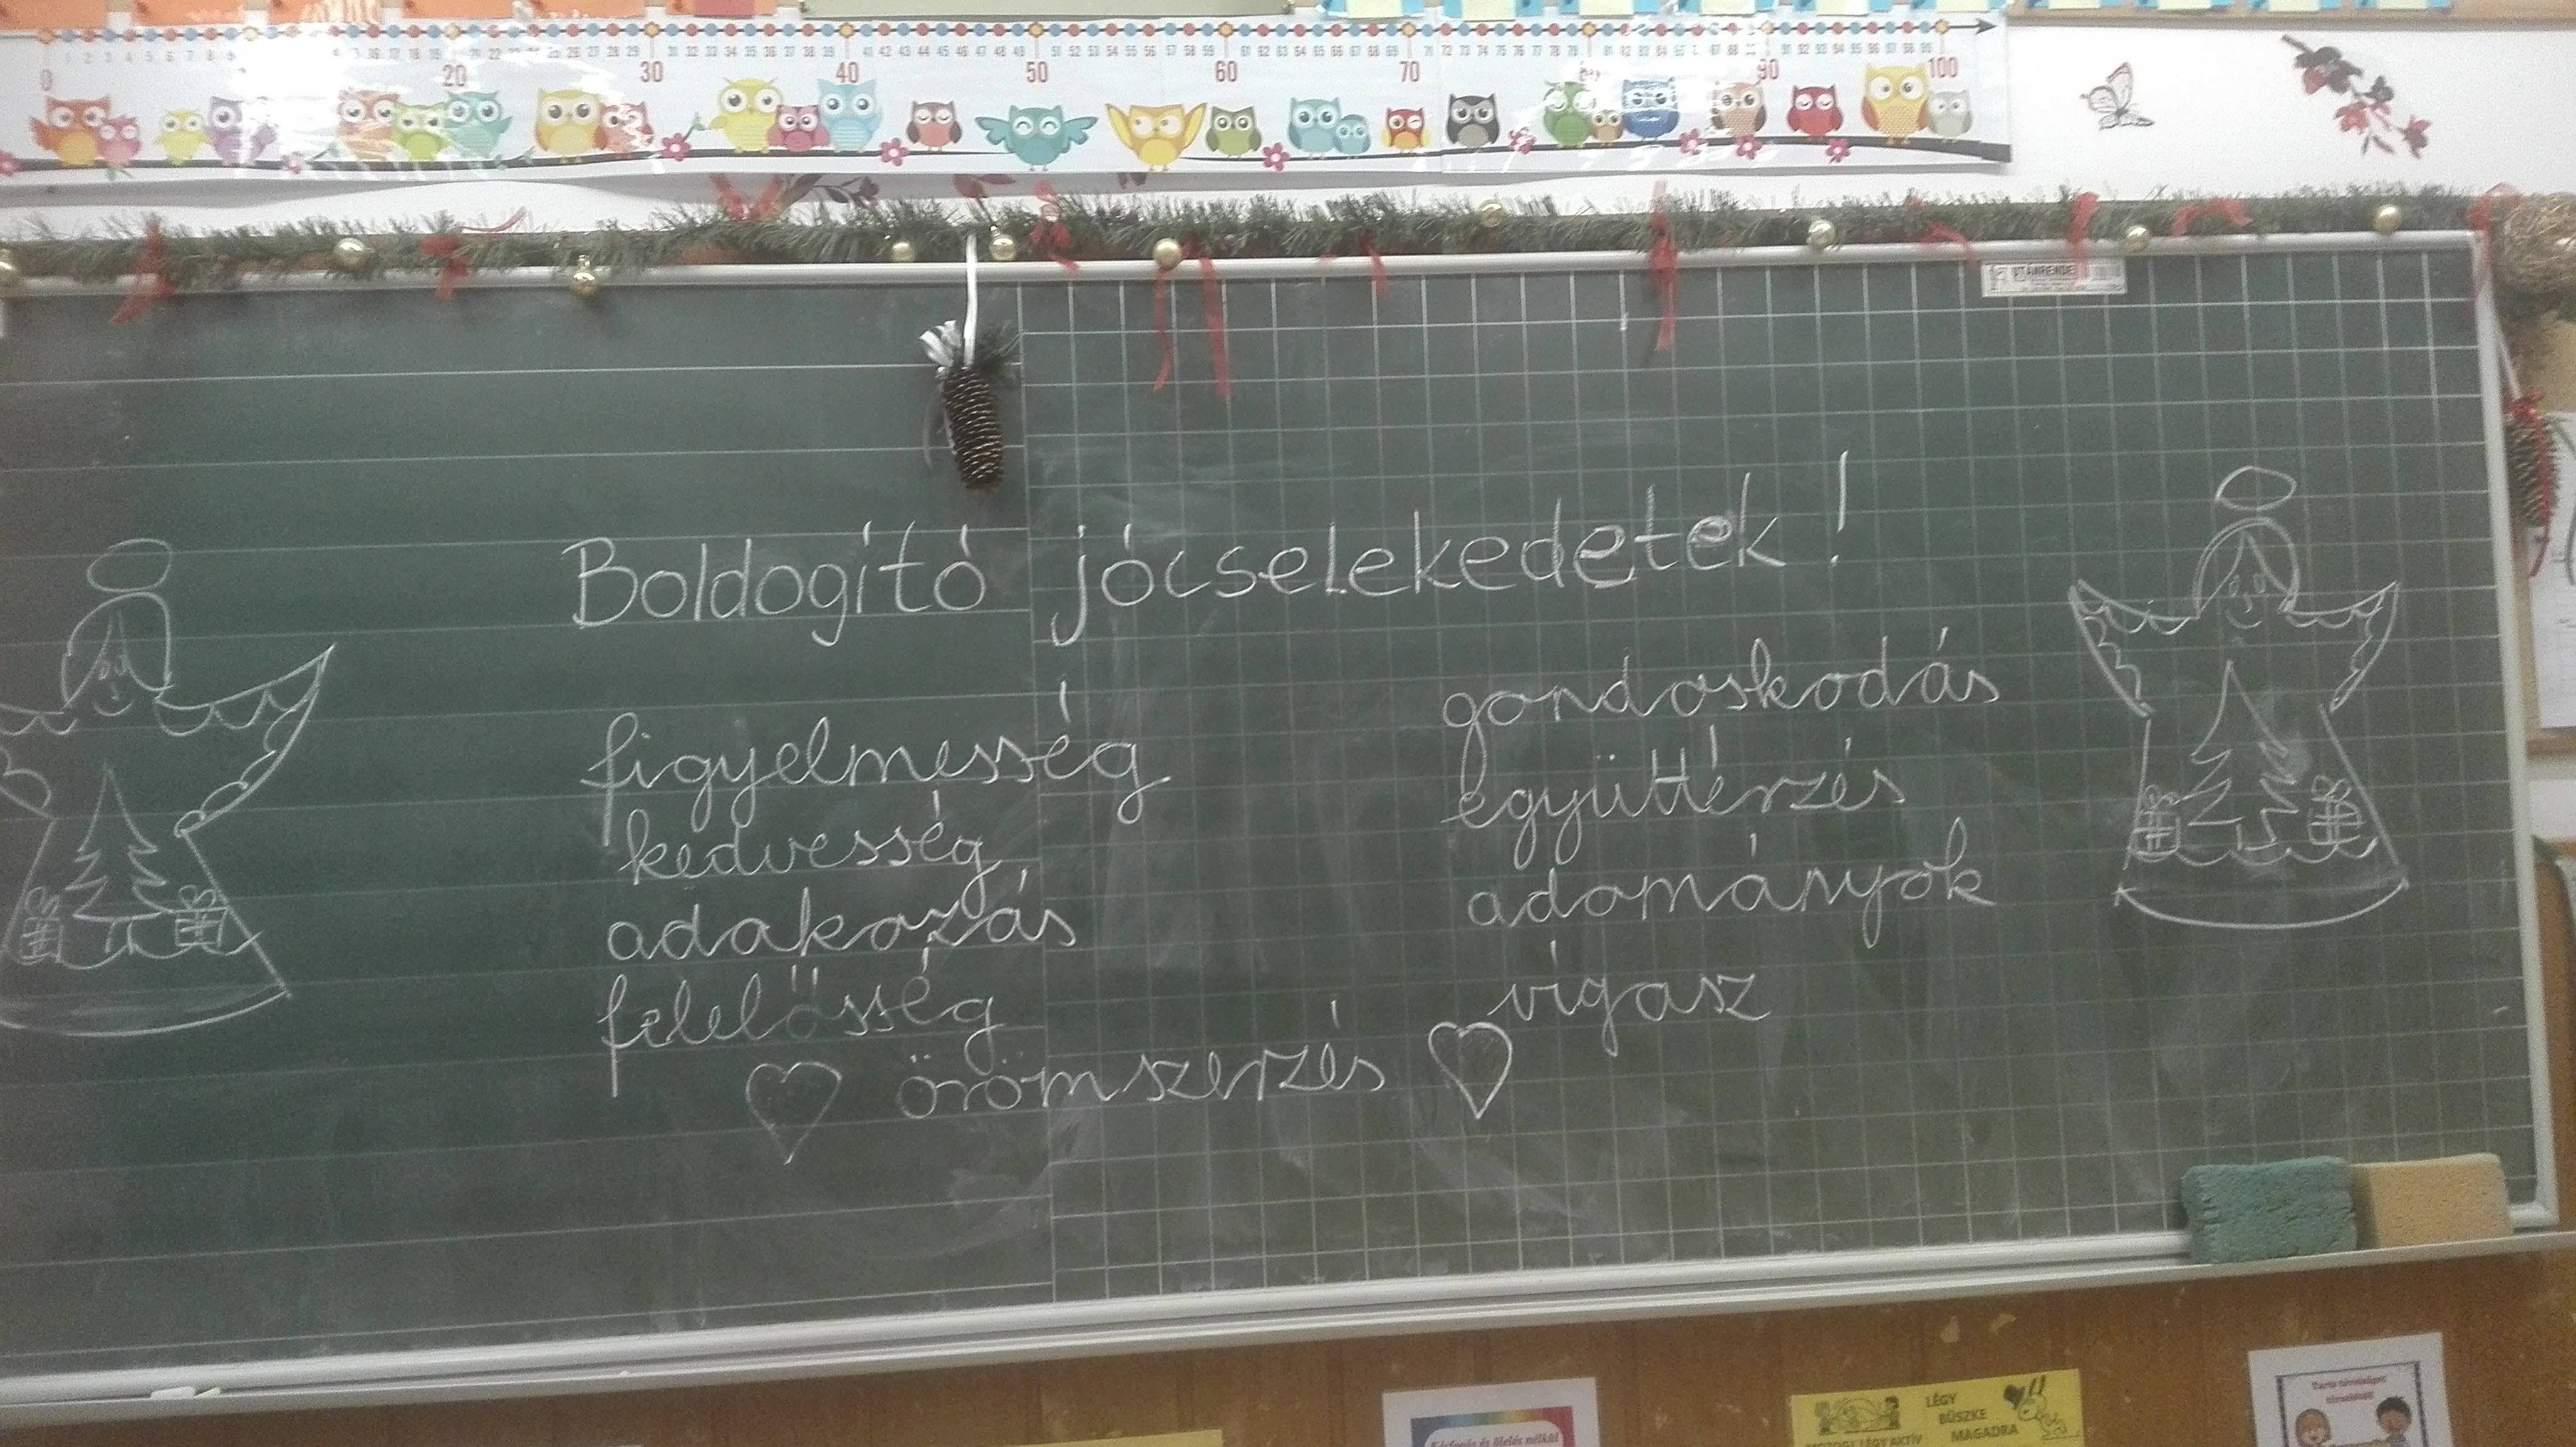 0 10 20 30 40 50 60 70 80 90 100
Boldogító jócselekedetek!
figyelmesség
kedvesség
adakozás
felelősség
gondoskodás
együttérzés
adományok
vígasz
örömszerzés
LÉGY
BÜSZKE
MAGADRA
MOZOGJ, LÉGY AKTÍV